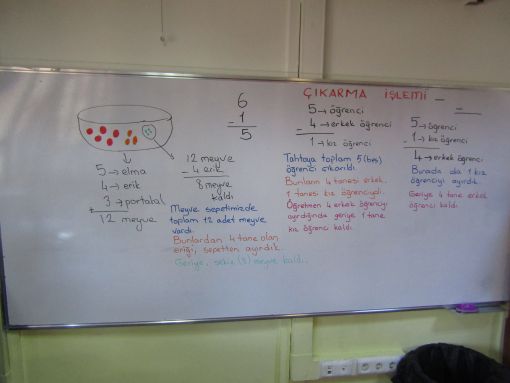 ÇIKARMA İŞLEMİ —
5 → elma
4 → erik
3 → portakal
+
12 meyve
12 meyve
- 4 erik
8 meyve
kaldı
Meyve sepetimizde
toplam 12 adet meyve
vardı.
Bunlardan 4 tane olan
eriği, sepetten ayırdık.
Geriye, sekiz (8) meyve kaldı.
6
- 1
5
5 → öğrenci
4 → erkek öğrenci
1 → kız öğrenci
Tahtaya toplam 5 (beş)
öğrenci çıkarıldı.
Bunların 4 tanesi erkek,
1 tanesi kız öğrenciydi.
Öğretmen 4 erkek öğrenciyi
ayırdığında geriye 1 tane
kız öğrenci kaldı.
5 → öğrenci
- 1 → kız öğrenci
4 → erkek öğrenci
Burada da 1 kız
öğrenciyi ayırdık.
Geriye 4 tane erkek
öğrenci kaldı.